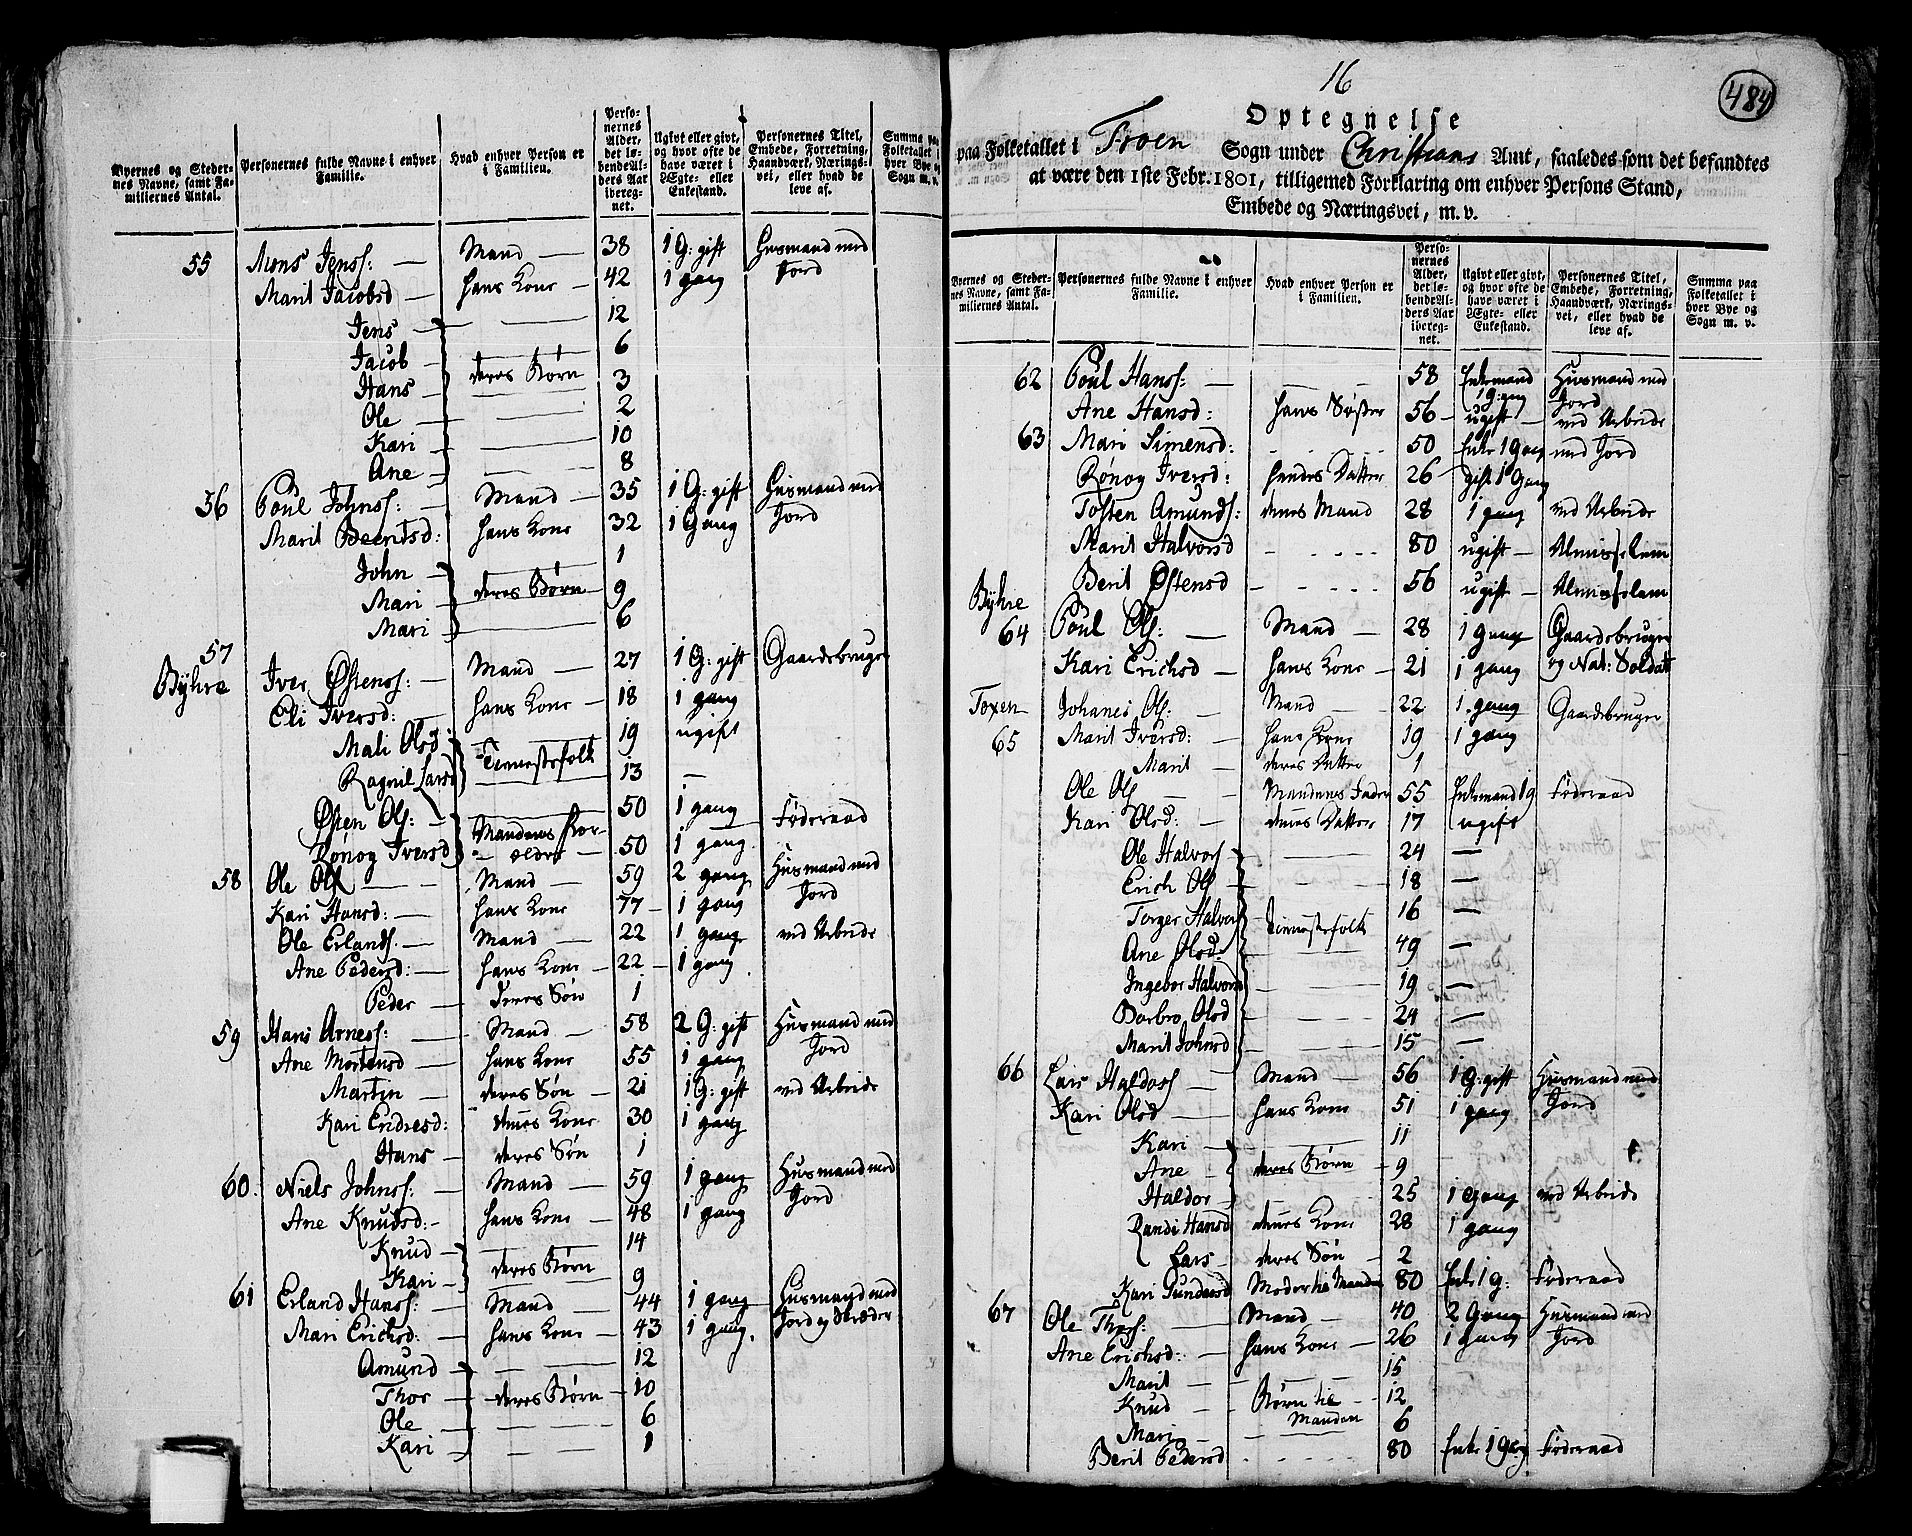 Byernes og Stedernes Navne, samt Familiernes Antal.
Personernes fulde Navne i enhver Familie.
Hvad enhver Person er i Familien.
Personernes Alder, det løbende Alders Aar iberegnet.
Ugivt eller givt, og hvor ofte de have været i Ægte- eller Enkestand.
Personernes Titel, Embede, Forretning, Haandværk, Næringsvei, eller hvad de leve af.
Summa paa Folketallet i hver Bye og Sogn m. v.
55 Mons Jenss: — Mand — 38 1 G: gift Huusmand med
Marit Jacobsd — hans Kone — 42 1 gang Jord
Jens — 12
Jacob — 6
Hans — deres Børn 3
Ole — 2
Kari — 10
Ane — 8
56 Poul Johnss: — Mand — 35 1 G: gift Huusmand med
Marit Beentsd: hans Kone 32 1 Gang Jord
John — 1
Mari — deres Børn 9
Mari — 6
57
Byhre Iver Østenss: — Mand — 27 1 G: gift Gaardebruger
Eli Iversd: — hans Kone — 18 1 gang
Mali Olsd: 19 ugift
Ragnil Larsd Tienestefolk 13 —
Østen Ols: — Mandens For- 50 1 gang Føderaad
Rønog Iversd — ældre — 50 1 gang
58 Ole Ols — Mand — 59 2 gang Huusmand med
Kari Hansd: — hans Kone 77 — 1 gang Jord
Ole Erlands. — Mand — 22 1 gang ved Arbeide
Ane Pedersd: — hans Kone — 22 — 1 gang
Peder — deres Søn 1
59 Hans Arness: — Mand — 58 2 G: gift Huusmand med
Ane Mortensd — hans Kone 55 1 gang Jord
Martin — deres Søn — 21 1 G: gift ved Arbeide
Kari Endresd: — dennes Kone 30 1 gang
Hans — deres Søn 1
60. Niels Johnss: — Mand — 59 1 gang Huusmand med
Ane Knudsd: — hans Kone — 48 1 gang Jord
Knud — 14
Kari — deres Børn 9
61 Erland Hanss: — Mand — 44 1 gang Huusmand med
Mari Erichsd: — hans Kone — 43 1 gang. Jord og Skræder
Amund — 12
Thor — deres Børn — 10
Ole — 6
Kari — 1
16
484
Optegnelse
paa Folketallet i Froen Sogn under Christians Amt, saaledes som det befandtes
at være den 1ste Febr. 1801, tilligemed Forklaring om enhver Persons Stand,
Embede og Næringsvei, m. v.
Byernes og Stedernes Navne, samt Familiernes Antal.
Personernes fulde Navne i enhver Familie.
Hvad enhver Person er i Familien.
Personernes Alder, det løbende Alders Aar iberegnet.
Ugivt eller givt, og hvor ofte de have været i Ægte- eller Enkestand.
Personernes Titel, Embede, Forretning, Haandværk, Næringsvei, eller hvad de leve af.
Summa paa Folketallet i hver Bye og Sogn m. v.
62 Poul Hanss: — 58 Enkemand 1 gang Huusmand med Jord
Ane Hansd: hans Søster 56 — ugift — ved Arbeide
63 Mari Simensd: 50 Enke 1 Gang med Jord
Rønog Iversd: hendes Datter 26 — gift 1 Gang
Tosten Amunds: dennes Mand 28 1 gang ved Arbeide
Marit Halvorsd — 80 ugift — Almisselem
Berit Østensd — 56 ugift — Almisselem
Byhre
64 Poul Ols: — Mand — 28 1 Gang Gaardebruger
Kari Erichsd hans Kone — 21 1 gang og Nat: Soldat
Toxen Johanes Ols: — Mand — 22 1. gang Gaardebruger
65 Marit Iversd: — hans Kone 19 1 gang
Marit — deres Datter 1
Ole Ols — Mandens Fader 55 Enkemand 1 g Føderaad
Kari Olsd: — dennes Datter 17 ugift
Ole Halvors — 24 —
Erich Ols — 18 —
Torger Halvors tienestefolk 16 —
Ane Olsd: 49 —
Ingebor Halvorsd 19 —
Barbro Olsd 24 —
Marit Johnsd 15 —
66 Lars Haldors — Mand — 56 1 G: gift Huusmand med
Kari Olsd — hans Kone 51 1 gang Jord
Kari — 11
Ane — deres Børn — 9
Haldor — 25 1 Gang ved Arbeide
Randi Hansd dennes Kone 28 1 gang
Lars — deres Søn — 2
Kari Gundersd Moder til Manden 80 Enke 1 g: Føderaad
67 Ole Thoss: — Mand — 40 2 Gang Huusmand med
Ane Erichsd: — hans Kone — 26 1 Gang Jord
Marit — 15
Knud — Børn til — 12
Mari — Manden 6
Berit Pedersd 80 Enke 1 Gang Føderaad